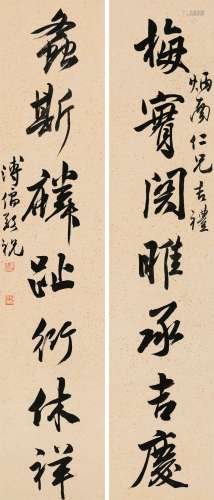 梅實関雎承吉慶
炳南仁兄吉禮
螽斯麟趾衍休祥
溥儒敬祝